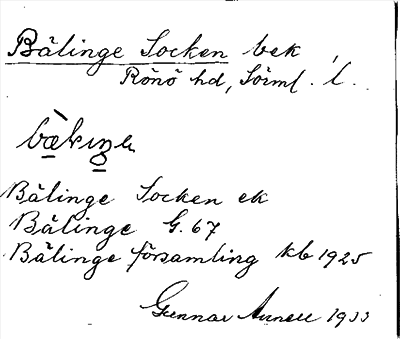 Bälinge Socken bek
Rönö hd, Sörml. L.
Bälinge Socken ek
Bälinge G. 67
Bälinge församling kb 1925
Gunnar Annell 1933